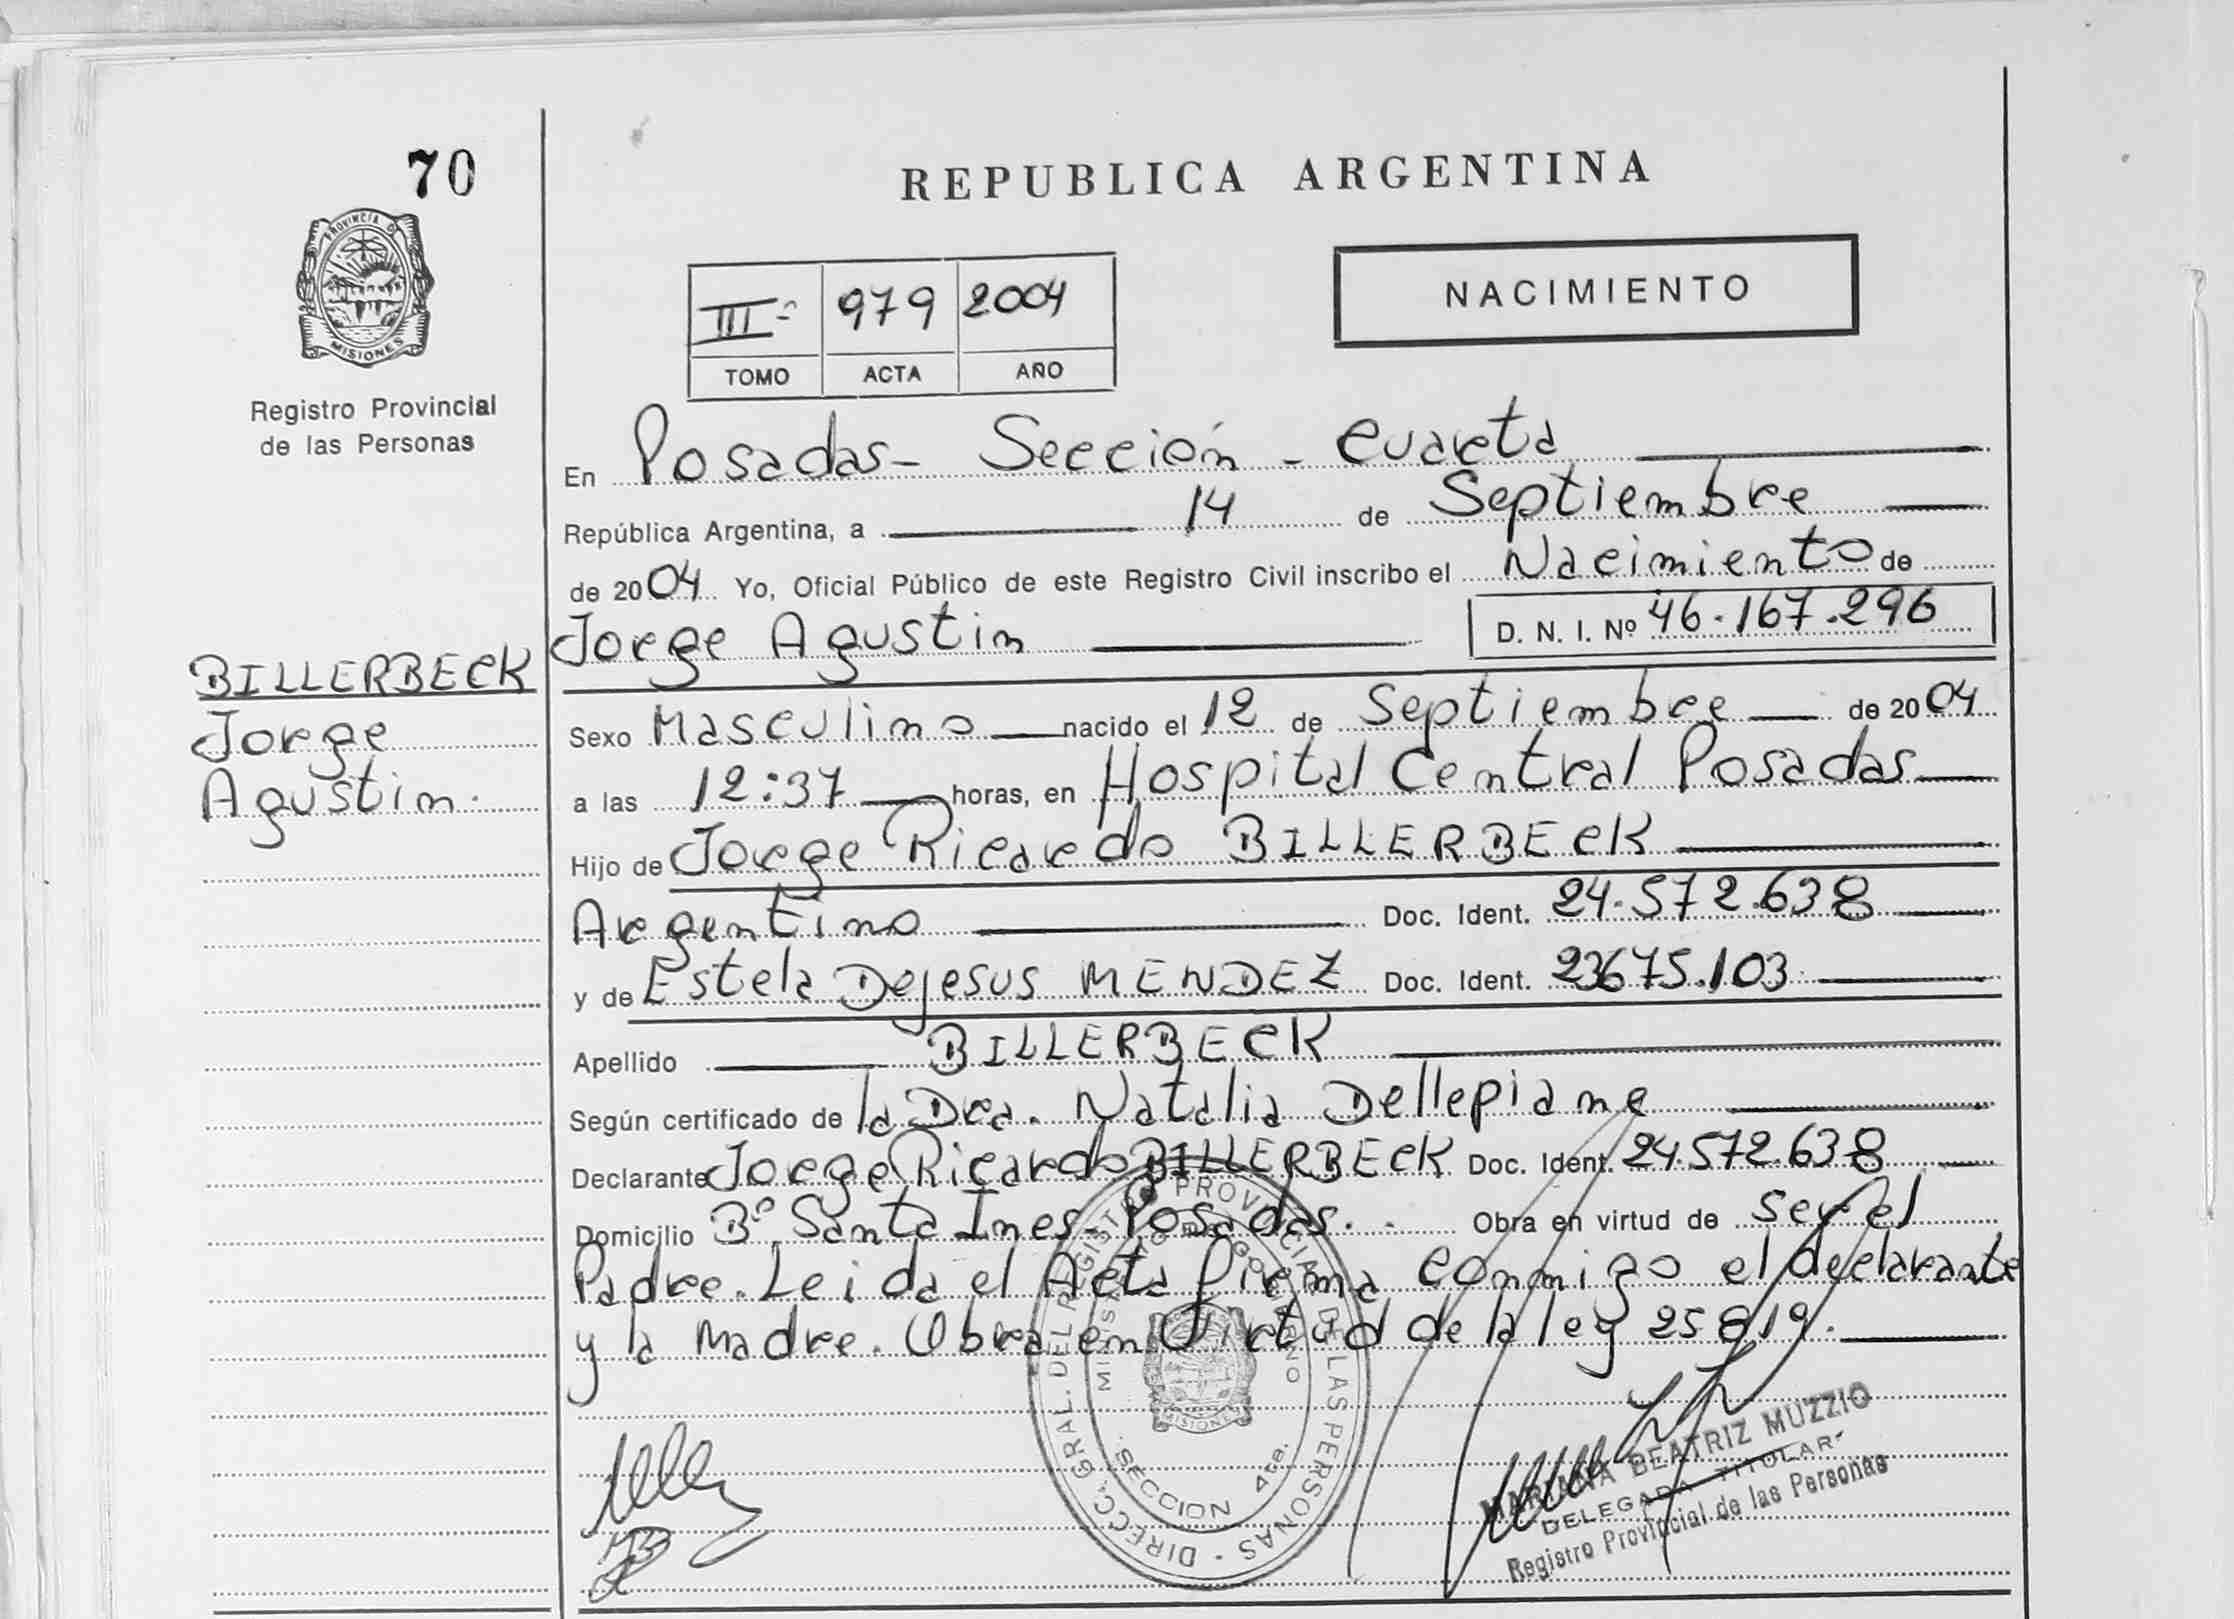 70
REPUBLICA ARGENTINA
PROVINCIA D
MISIONES
Registro Provincial
de las Personas
NACIMIENTO
III- 979 2004
TOMO ACTA AÑO
En Posadas- Sección - Cuarta
República Argentina, a 14 de Septiembre
de 2004 Yo, Oficial Público de este Registro Civil inscribo el Nacimiento de
Jorge Agustin D. N. I. Nº 46.167.296
BILLERBECK
Jorge
Agustin.
Sexo Masculino nacido el 12 de Septiembre de 2004
a las 12:37 horas, en Hospital Central Posadas
Hijo de Jorge Ricardo BILLERBECK
Argentino Doc. Ident. 24.572.638
y de Estela Dejesus MENDEZ Doc. Ident. 23675.103
Apellido BILLERBECK
Según certificado de la Dra. Natalia Dellepiane
Declarante Jorge Ricardo BILLERBECK Doc. Ident. 24.572.638
Domicilio Bº Santa Ines- Posadas. Obra en virtud de ser el
Padre. Leida el Acta firma conmigo el declarante
y la Madre. Obra en Virtud de la ley 25819.
DIRECC. GRAL. DEL REGISTRO PROVINCIAL DE LAS PERSONAS -
MINISTERIO DE GOBIERNO
MISIONES
SECCION 4ta.
MARIANA BEATRIZ MUZZIO
DELEGADA TITULAR
Registro Provincial de las Personas